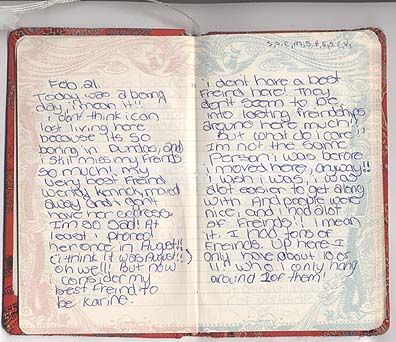 Feb 21
Today was a boring
day, i mean it!!
i don't think i can
last living here
because its so
boring in Dundas, and
i still miss my Freinds
so much! my
very best Freind
Wendy Kenny moved
away and i don't
have her address.
Im so sad! At
least i phoned
her once in August!!
(i think it was August!!)
oh well!! But now
i consider my
best Freind to
be Karine.
i don't have a best
Freind here! They
don't seem to be
into lasting freindships
around here much!
But what do i care!!
Im not the same
Person i was before
i moved here, anyway!!
i wish i was. i was
alot easier to get along
with. And people were
nice, and i had alot
of Freinds! I mean
it. I had tons of
Freinds. Up here I
only have about 10 or
11! Who i only hang
around 2 of them!